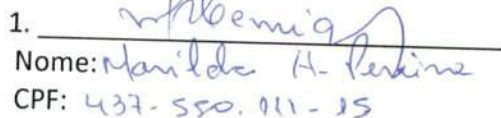 1.
Nome: Marilda H. Pereira
CPF: 437.550.111-15